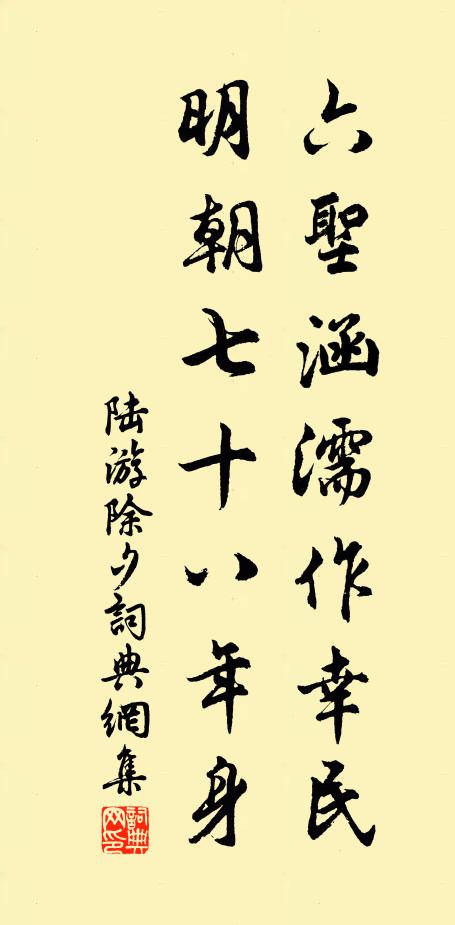 六聖涵濡作幸民
明朝七十八年身
陆游除夕詞典網集
詞典
网印